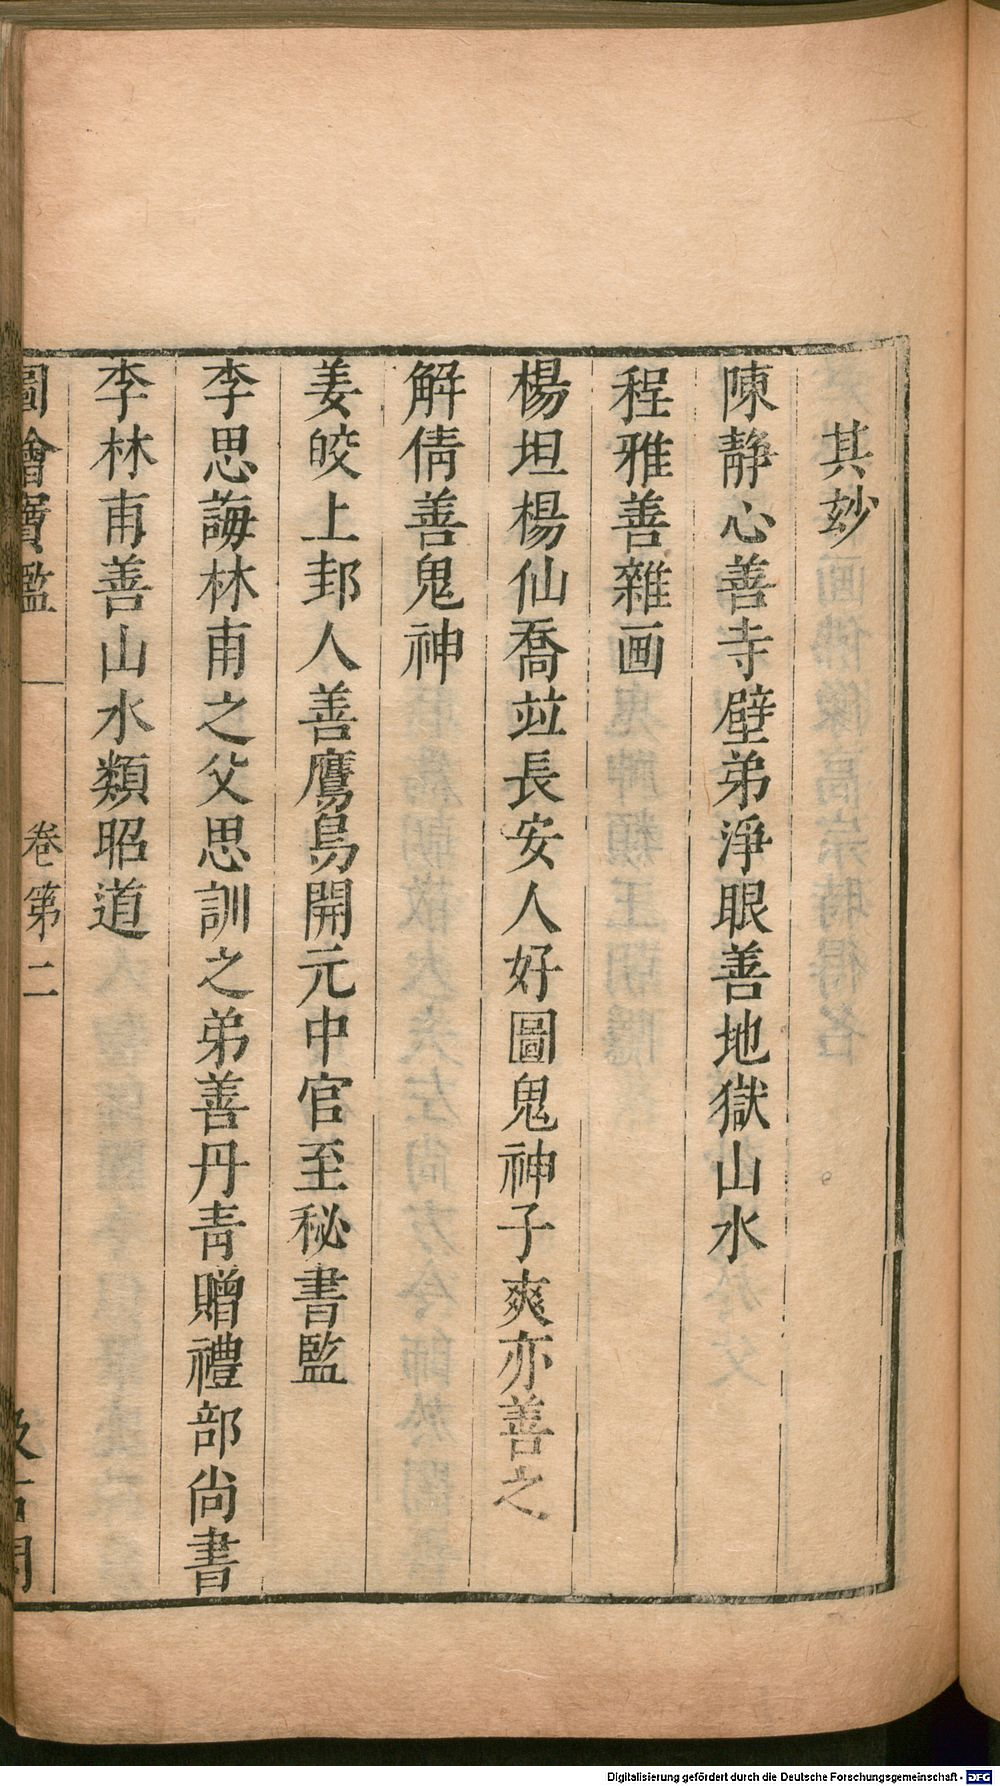 其玅
陳靜心善寺壁弟淨眼善地獄山水
程雅善雜画
楊坦楊仙喬竝長安人好圖鬼神子爽亦善之
解倩善鬼神
姜皎上邽人善鷹鳥開元中官至秘書監
李思誨林甫之父思訓之弟善丹青贈禮部尚書
李林甫善山水類昭道
圖繪寶鑑
卷第二
汲古閣
Digitalisierung gefördert durch die Deutsche Forschungsgemeinschaft - DFG